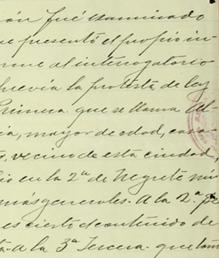 ón fué examinado
que presentó el propio in-
me al interrogatorio
previa la protesta de ley
Primera que se llama
cia, mayor de edad, casa
vecino de esta ciudad,
en la 2ª de
más generales. A la 2ª. p
es cierto el contenido de
ta- A la 3ª Tercera- que